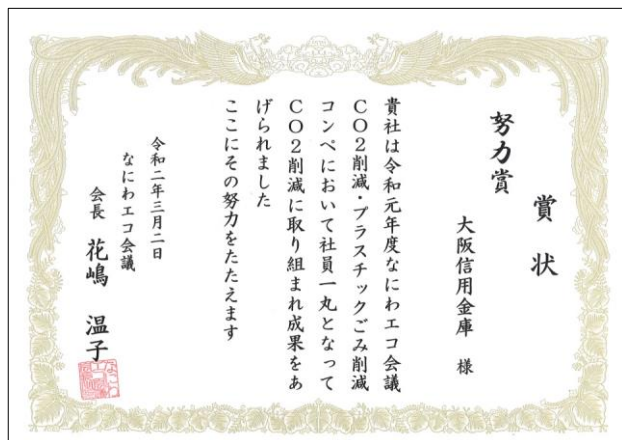 賞状
努力賞
大阪信用金庫 様
貴社は令和元年度なにわエコ会議
CO2削減・プラスチックごみ削減
コンペにおいて社員一丸となって
CO2削減に取り組まれ成果をあ
げられました
ここにその努力をたたえます
令和二年三月二日
なにわエコ会議
会長 花嶋 温子